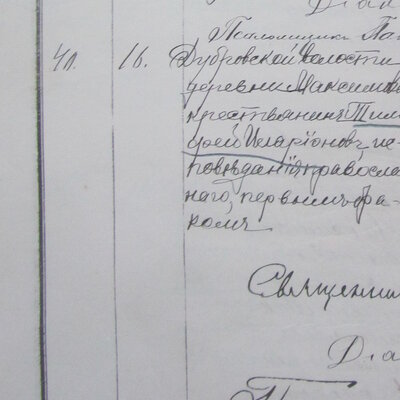 Діа
Псаломщикъ Па
40. 16. Дубровской волости
деревни Максимов
крестьянинъ Тим
ѳей Иларіоновъ, ис-
повѣданія правосла
наго, первымъ бра-
комъ
Священни
Діа